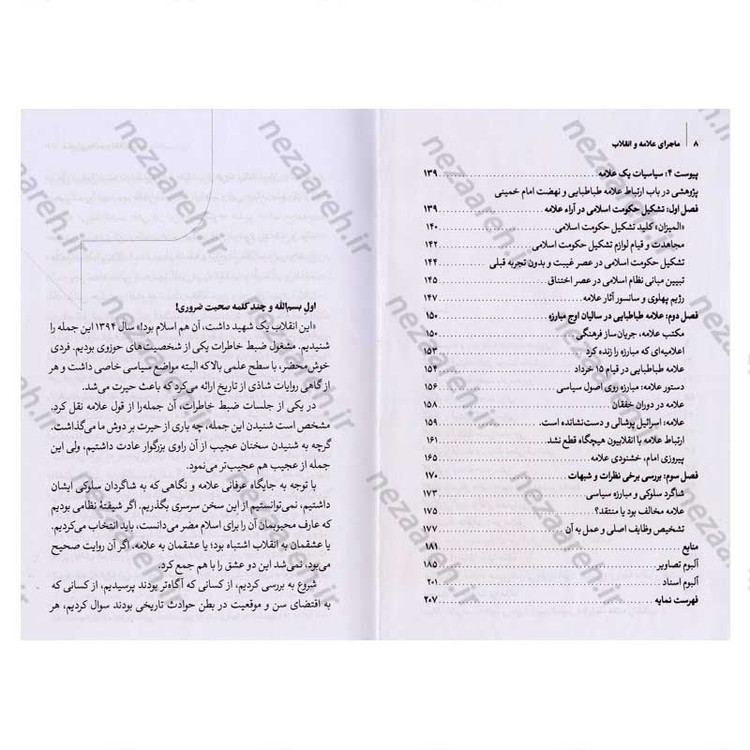 ۸ | ماجرای علامه و انقلاب
پیوست ۴: سیاسیات یک علامه ۱۳۹
پژوهشی در باب ارتباط علامه طباطبایی و نهضت امام خمینی
فصل اول: تشکیل حکومت اسلامی در آراء علامه ۱۳۹
«المیزان» کلید تشکیل حکومت اسلامی ۱۴۰
مجاهدت و قیام لوازم تشکیل حکومت اسلامی ۱۴۲
تشکیل حکومت اسلامی در عصر غیبت و بدون تجربه قبلی ۱۴۴
تبیین مبانی نظام اسلامی در عصر اختناق ۱۴۵
رژیم پهلوی و سانسور آثار علامه ۱۴۷
فصل دوم: علامه طباطبایی در سالیان اوج مبارزه ۱۵۰
مکتب علامه، جریان‌ساز فرهنگی ۱۵۰
اعلامیه‌ای که مبارزه را زنده کرد ۱۵۳
علامه طباطبایی در قیام ۱۵ خرداد ۱۵۴
دستور علامه: مبارزه روی اصول سیاسی ۱۵۶
علامه در دوران خفقان ۱۵۸
علامه: اسرائیل پوشالی و دست‌نشانده است. ۱۵۹
ارتباط علامه با انقلابیون هیچگاه قطع نشد ۱۶۱
پیروزی امام، خشنودی علامه ۱۶۵
فصل سوم: بررسی برخی نظرات و شبهات ۱۷۰
شاگرد سلوکی و مبارزه سیاسی ۱۷۳
علامه مخالف بود یا منتقد؟ ۱۷۵
تشخیص وظایف اصلی و عمل به آن ۱۷۷
منابع ۱۸۱
آلبوم تصاویر ۱۸۵
آلبوم اسناد ۲۰۱
فهرست نمایه ۲۰۷
اول بسم‌الله و چند کلمه صحبت ضروری!
«این انقلاب یک شهید داشت، آن هم اسلام بود!» سال ۱۳۹۴ این جمله را
شنیدیم. مشغول ضبط خاطرات یکی از شخصیت‌های حوزوی بودیم. فردی
خوش‌محضر، با سطح علمی بالا که البته مواضع سیاسی خاصی داشت و هر
از گاهی روایات شاذی از تاریخ ارائه می‌کرد که باعث حیرت می‌شد.
در یکی از جلسات ضبط خاطرات، آن جمله را از قول علامه نقل کرد.
مشخص است شنیدن این جمله، چه باری از حیرت بر دوش ما می‌گذاشت.
گرچه به شنیدن سخنان عجیب از آن راوی بزرگوار عادت داشتیم، ولی این
جمله از عجیب هم عجیب‌تر می‌نمود.
با توجه به جایگاه عرفانی علامه و نگاهی که به شاگردان سلوکی ایشان
داشتیم، نمی‌توانستیم از این سخن سرسری بگذریم. اگر شیفتهٔ نظامی بودیم
که عارف محبوبمان آن را برای اسلام مضر می‌دانست، باید انتخاب می‌کردیم.
یا عشقمان به انقلاب اشتباه بود؛ یا عشقمان به علامه. اگر آن روایت صحیح
می‌بود، نمی‌شد این دو عشق را با هم جمع کرد.
شروع به بررسی کردیم، از کسانی که آگاه‌تر بودند پرسیدیم، از کسانی که
به اقتضای سن و موقعیت در بطن حوادث تاریخی بودند سوال کردیم، هر
nezaareh.ir
nezaareh.ir
nezaareh.ir
nezaareh.ir
nezaareh.ir
nezaareh.ir
nezaareh.ir
nezaareh.ir
nezaareh.ir